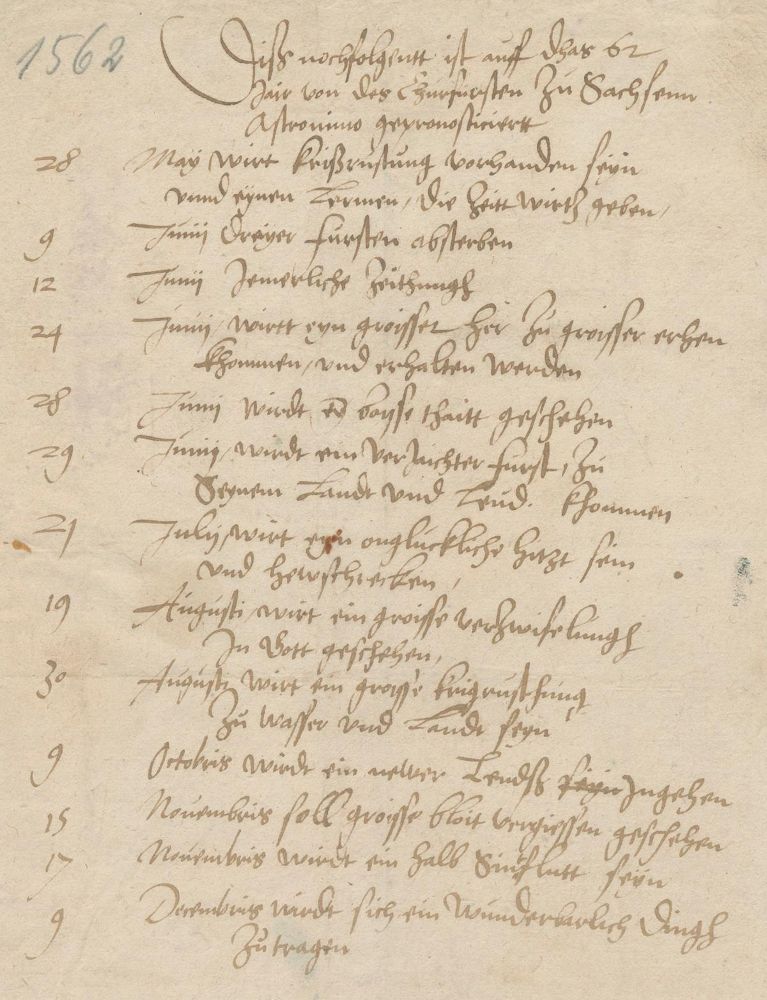 1562
Diß nochfolgentt ist auff dhas 62
Jair von des Churfursten zu Sachsenn
Astronimo gepronosticiertt
28 May wirt krißrustung vorhanden seyn
vnnd eynen Lermen, die Zeitt wirtz geben,
9 Junij dreyer fursten absterben
12 Junij Jemerliche Zeithungh
24 Junij, wirtt eyn groisser her zu groisser erhen
khommen, vnd erhalten werden
28 Junij wirdt boyse thaitt geschehen
29 Junij, wirdt ein veriachter furst, zu
Seynem Landt vnd Leud. khommen
21 Julij, wirt eyn onglückliche hitzt sein
vnd hewschrecken,
19 Augusti, wirt ein groisse verzwifelungh
In Gott geschehen,
30 Augusti wirt ein groisse krigrusthung
zu wasser vnd Landt seyn
9 Octobris wirdt ein newer seyn Ingehen
15 Nouembris soll groisse bloit vergiessen geschehen
17 Nouembris wirdt ein halb Sintflutt seyn
9 Decembris wirdt sich ein wunderbarlich dingh
zutragen